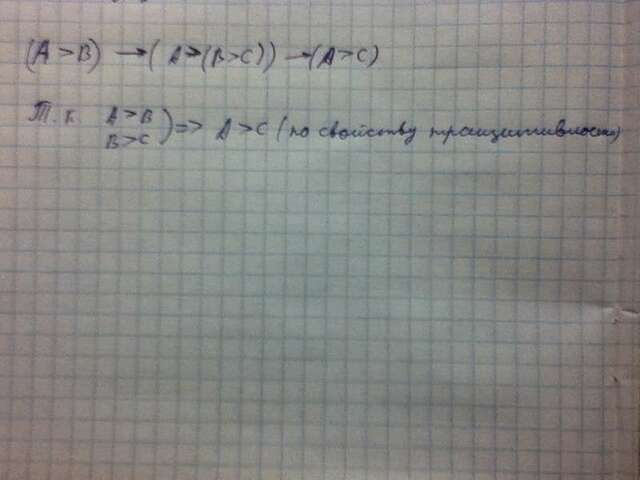 (A > B) → ( A > (B > C)) → (A > C)
Т. к. A > B
B > C ) => A > C (по свойству транцитивности)